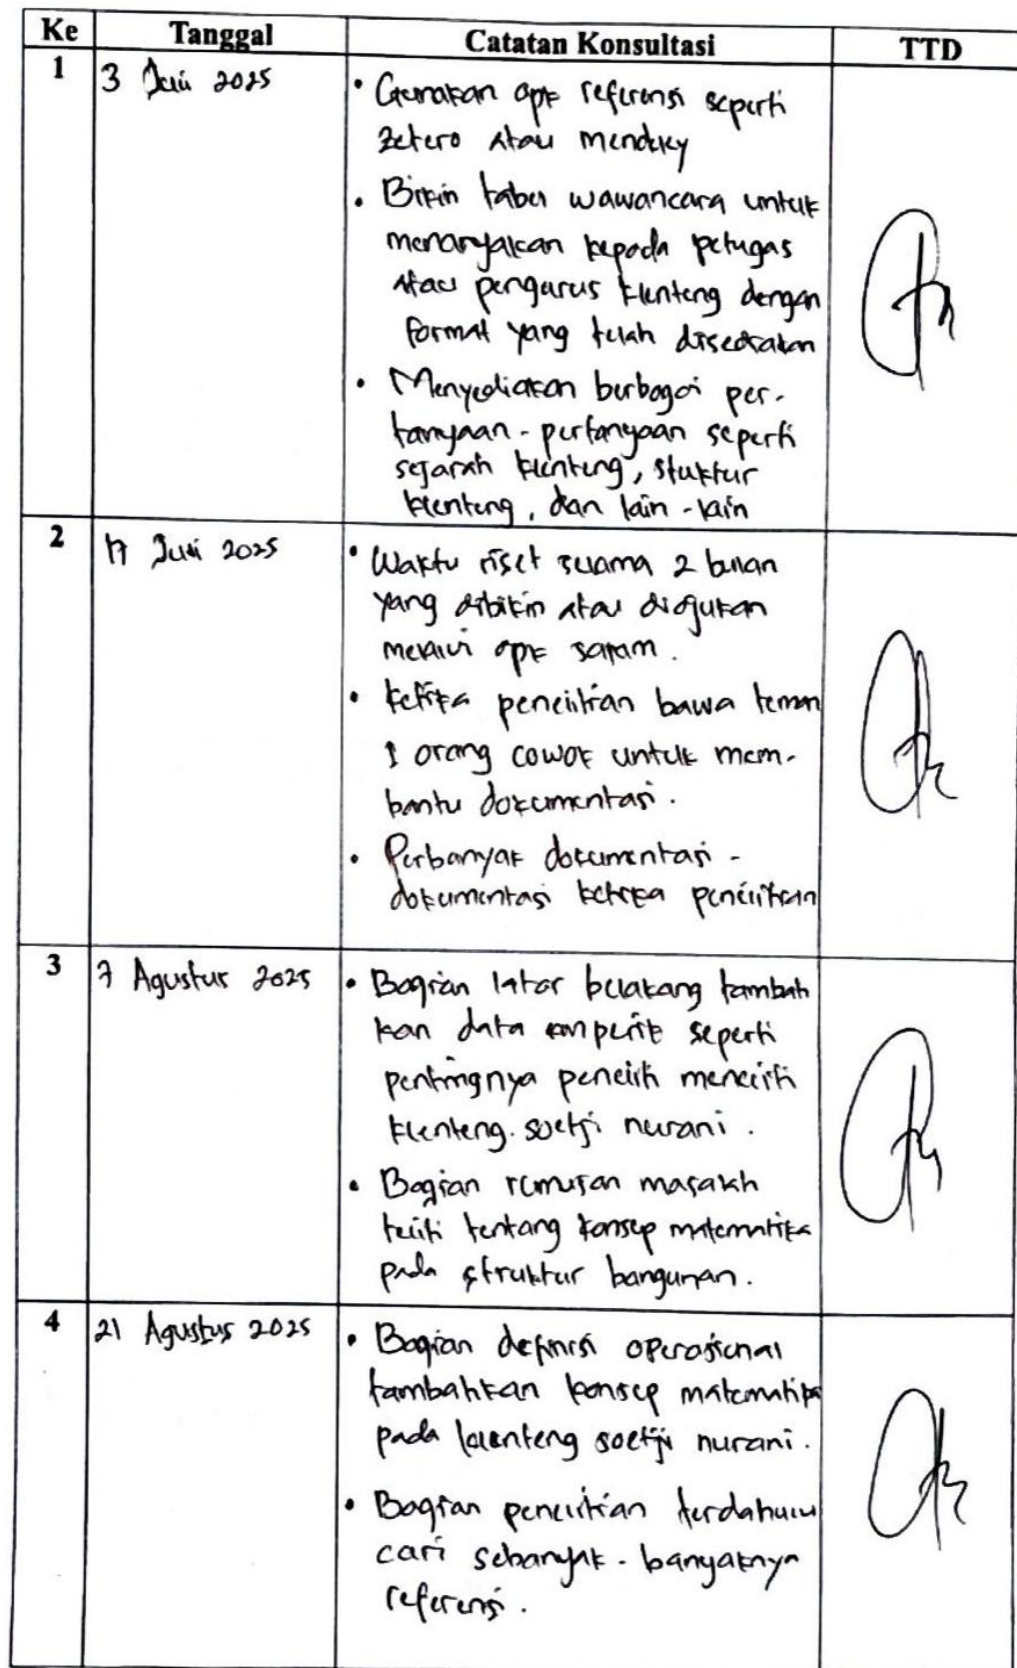 Ke Tanggal Catatan Konsultasi TTD
1 3 Juli 2025
• Gunakan apk referensi seperti
zetero atau mendeley
• Bikin tabel wawancara untuk
menanyakan kepada petugas
atau pengurus klenteng dengan
format yang telah disediakan
• Menyediakan berbagai per-
tanyaan - pertanyaan seperti
sejarah klenteng, stuktur
klenteng, dan lain - lain
2 17 Juli 2025
• Waktu riset selama 2 bulan
yang dibikin atau diajukan
melalui apk salam.
• Ketika penelitian bawa teman
1 orang cowok untuk mem-
bantu dokumentasi.
• Perbanyak dokumentasi -
dokumentasi ketika penelitian
3 7 Agustus 2025
• Bagian latar belakang tambah
kan data empirik seperti
pentingnya peneliti meneliti
klenteng. soetji nurani.
• Bagian rumusan masalah
teliti tentang konsep matematika
pada struktur bangunan.
4 21 Agustus 2025
• Bagian definisi operasional
tambahkan konsep matematika
pada klenteng soetji nurani.
• Bagian penelitian terdahulu
cari sebanyak - banyaknya
referensi.